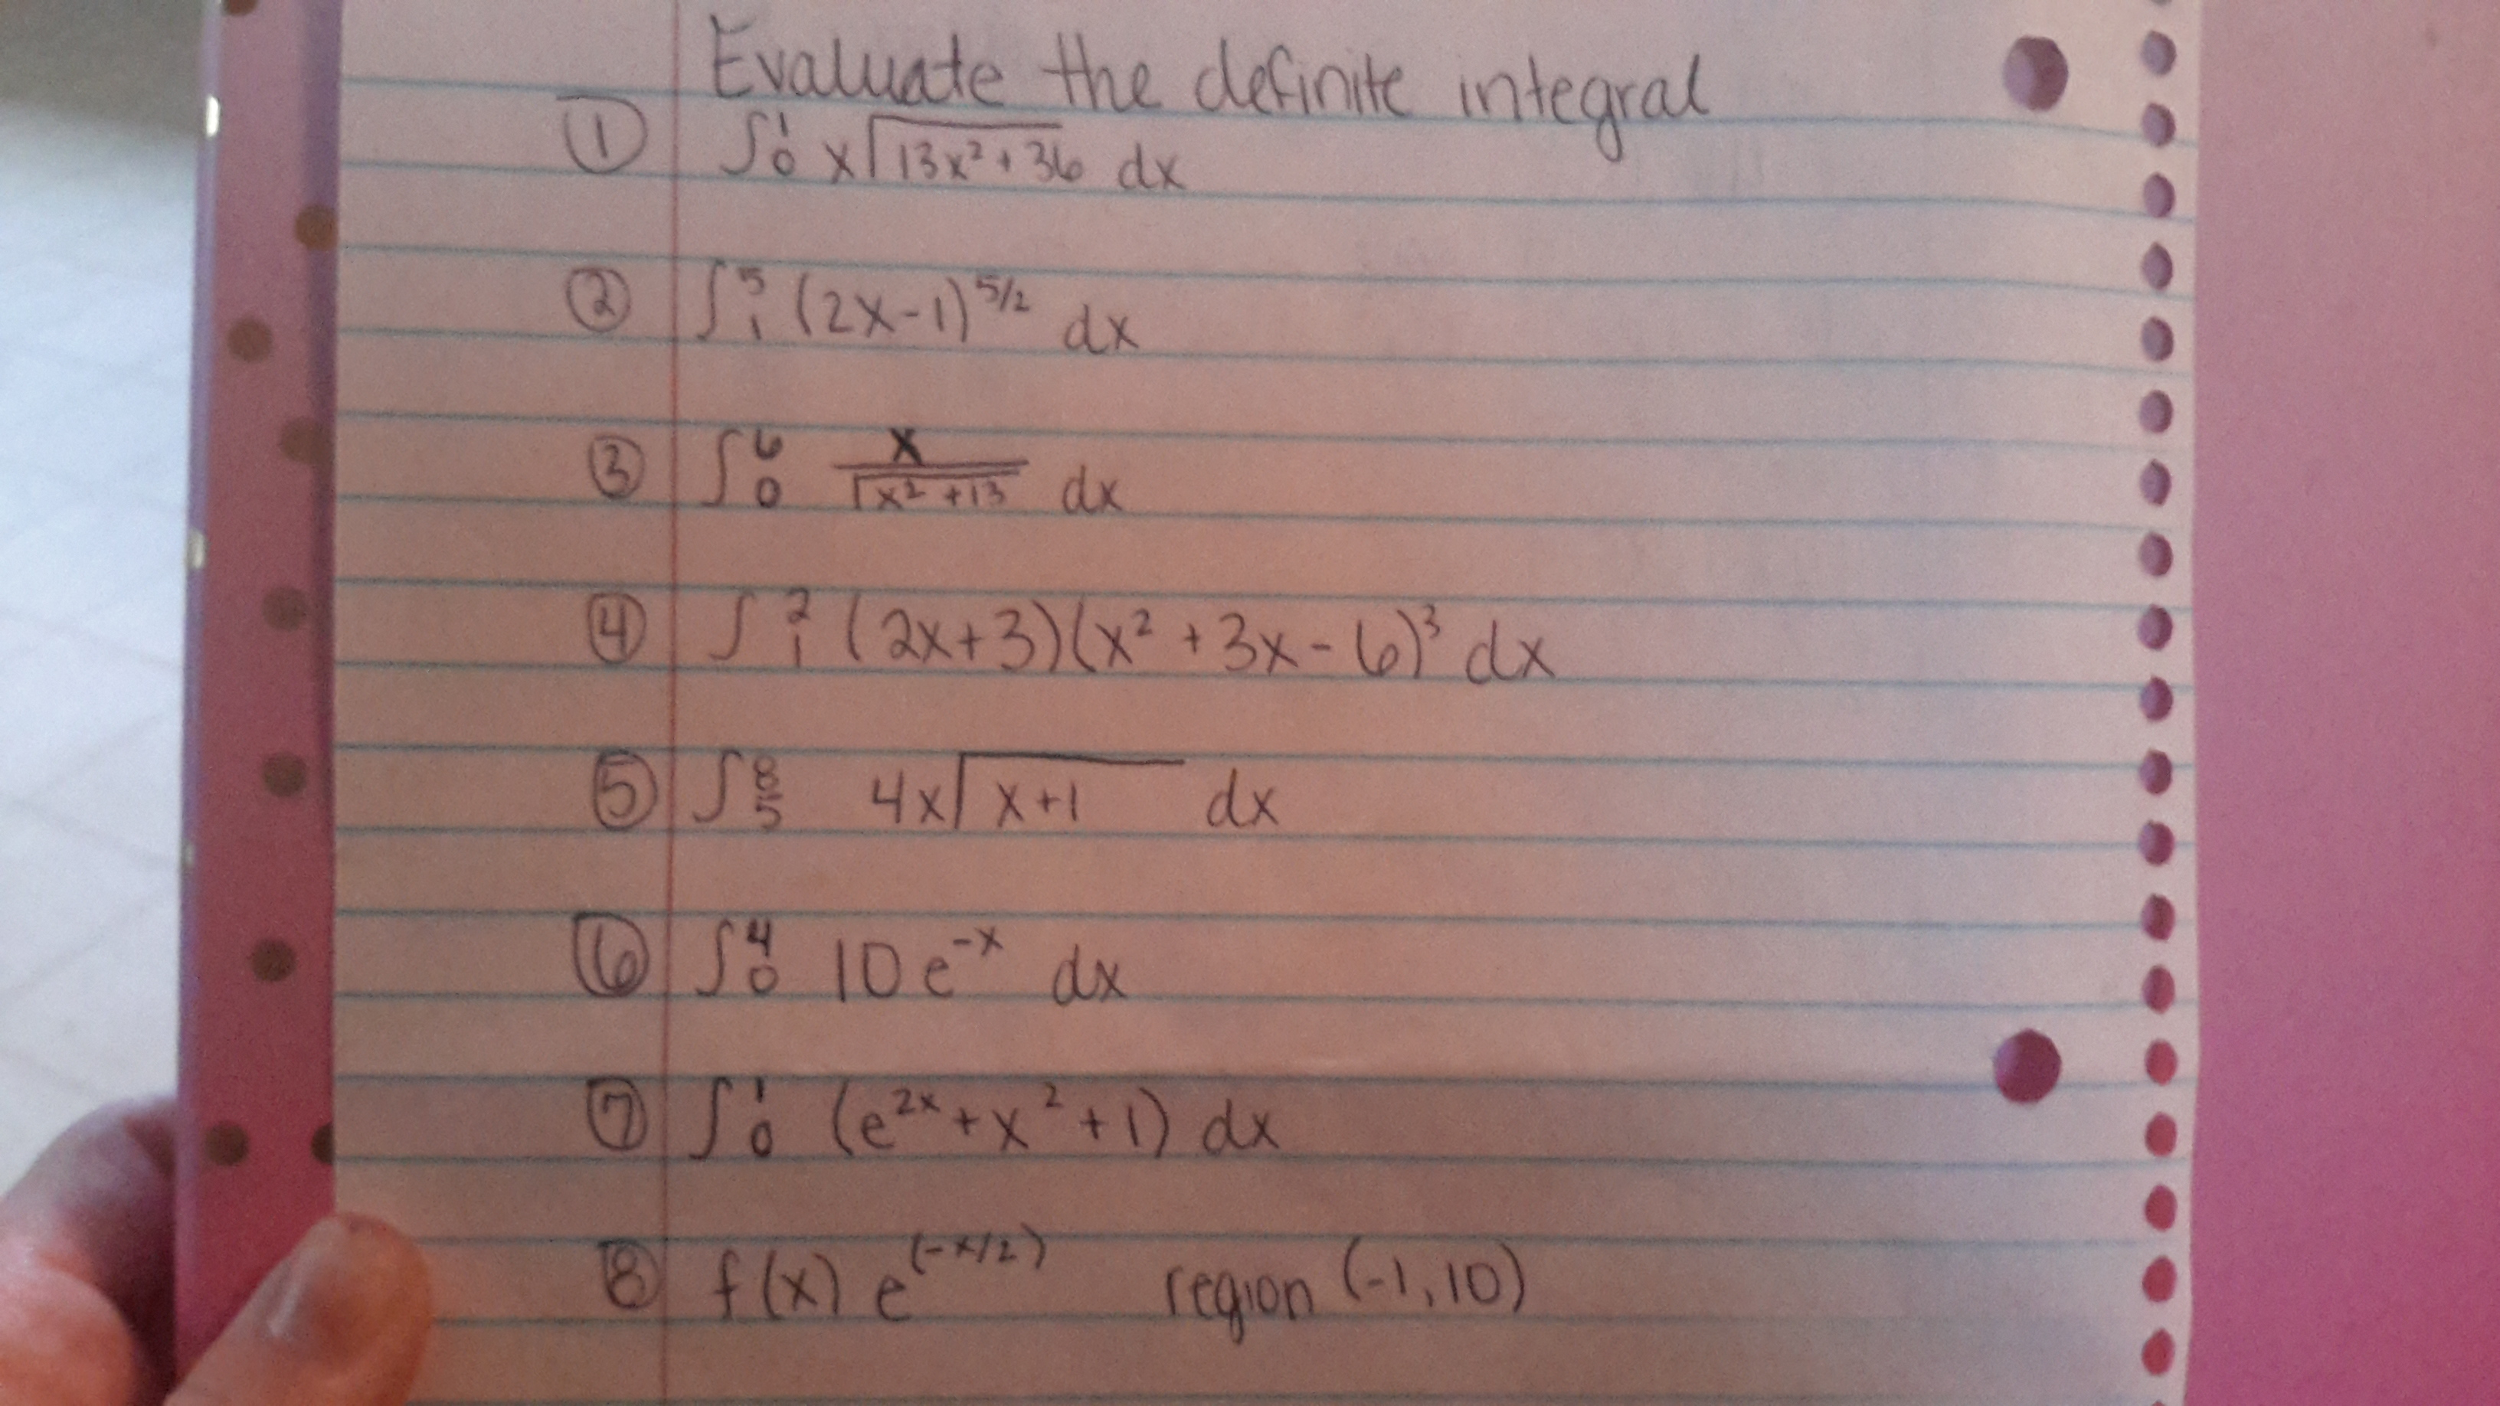 Evaluate the definite integral
① ∫₀¹ x√(13x² + 36) dx
② ∫₁⁵ (2x-1)^5/2 dx
③ ∫₀⁶ x/√(x² + 13) dx
④ ∫₁² (2x+3)(x² + 3x - 6)³ dx
⑤ ∫₅⁸ 4x√(x+1) dx
⑥ ∫₀⁴ 10e^-x dx
⑦ ∫₀¹ (e^2x + x² + 1) dx
⑧ f(x) e^(-x/2) region (-1, 10)